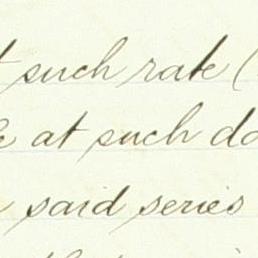 such rate (
at such da
said series